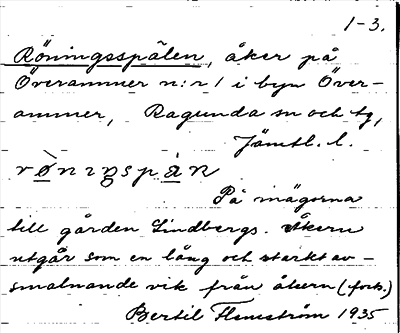 1-3.
Röningsspålen, åker på
Överammer n:r 1 i byn Över-
ammer, Ragunda sn och tg,
Jämtl. l.
På mägorna
till gården Lindbergs. Åkern
utgår som en lång och starkt av-
smalnande vik från åkern (forts.)
Bertil Flemström 1935